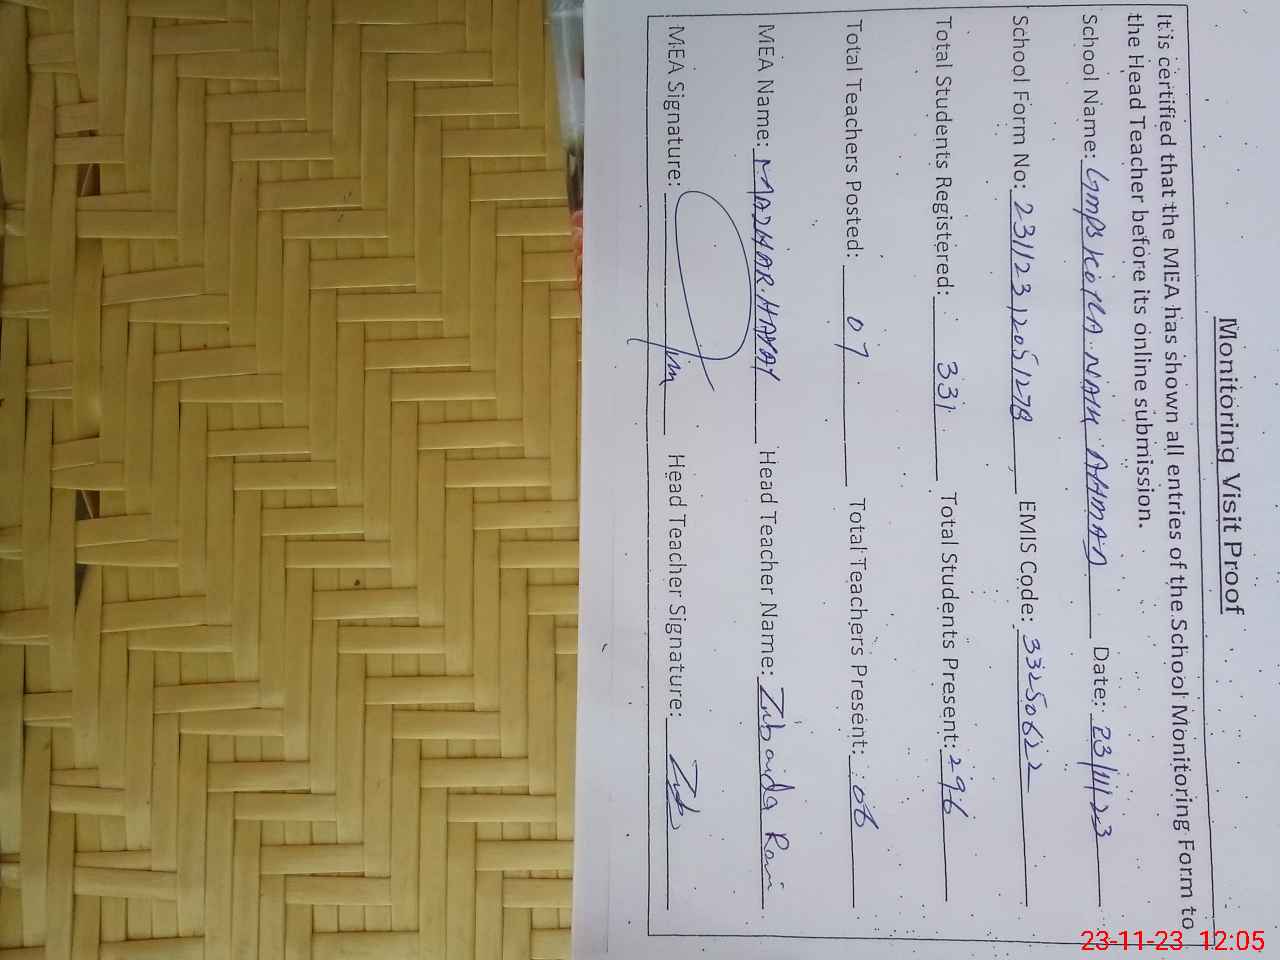 Monitoring Visit Proof
It is certified that the MEA has shown all entries of the School Monitoring Form to
the Head Teacher before its online submission.
School Name: GMPS KOTLA NAIM AHMAD Date: 23/11/23
School Form No: 231123120512 EMIS Code: 33250622
Total Students Registered: 331 Total Students Present: 296
Total Teachers Posted: 07 Total Teachers Present: 06
MEA Name: MAZHAR HAYAT Head Teacher Name: Zubaida Rani
MEA Signature: Head Teacher Signature:
23-11-23 12:05